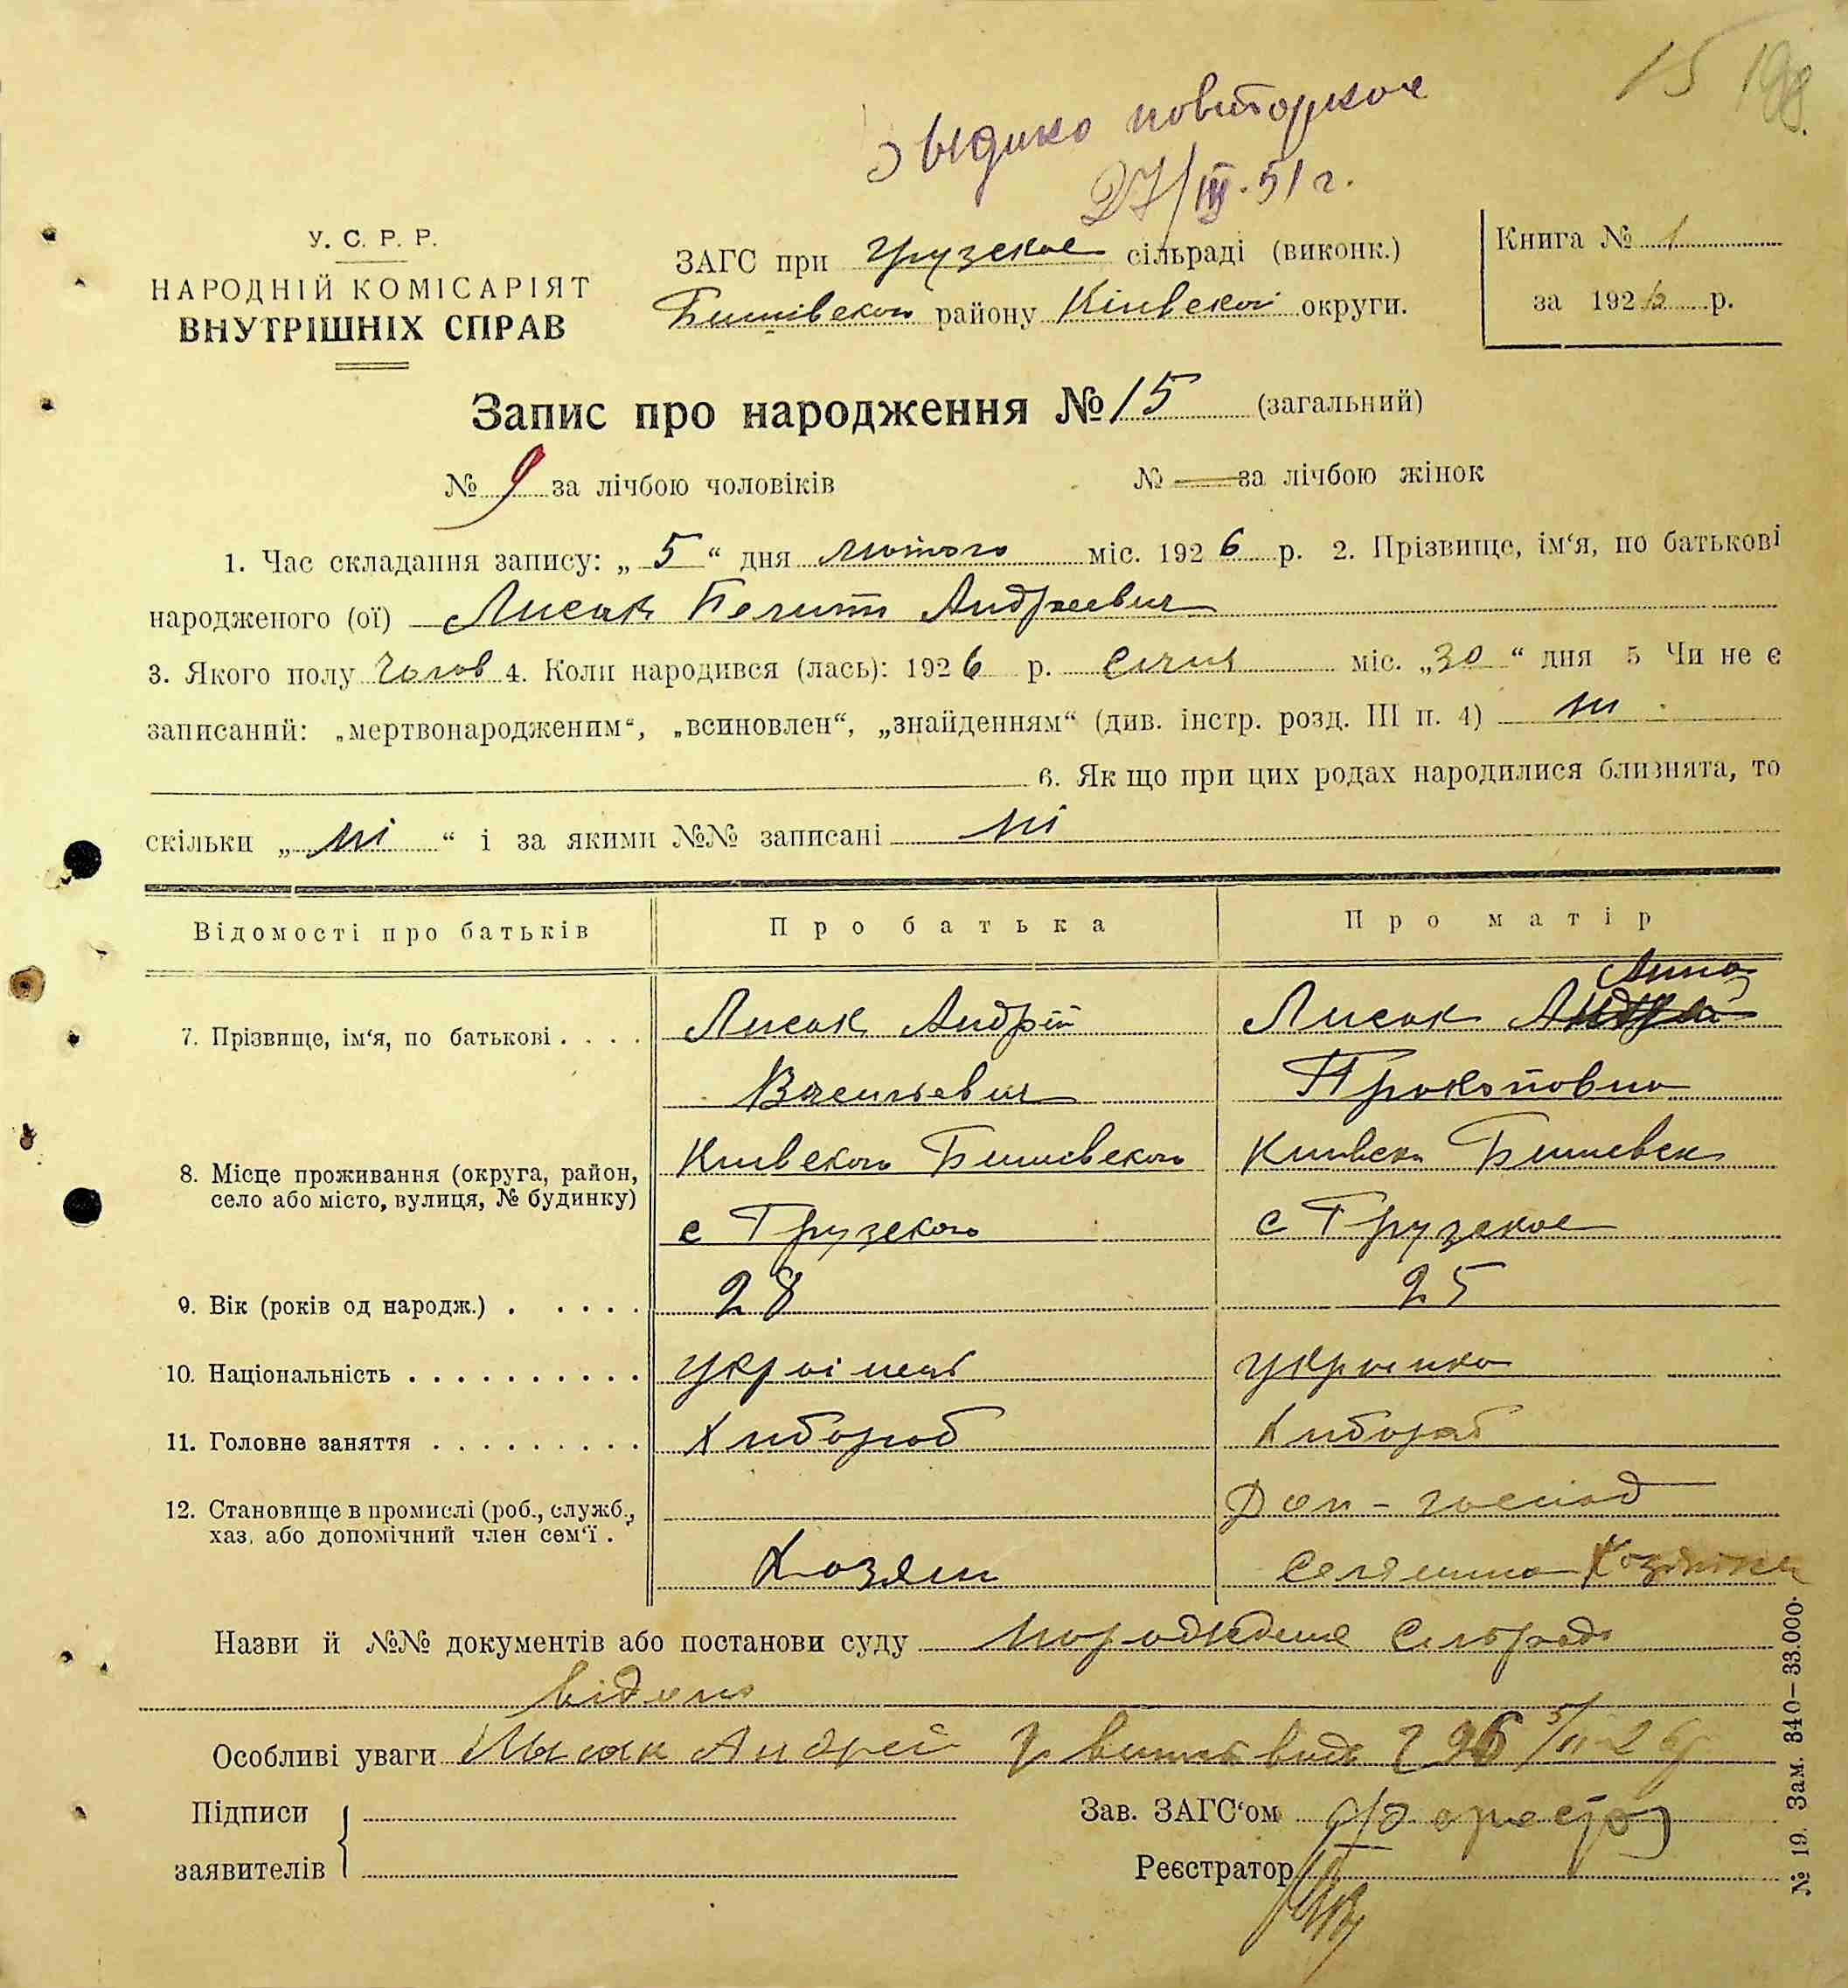 15 198
повторное
27/III.51 г.
У. С. Р. Р.
НАРОДНІЙ КОМІСАРІЯТ
ВНУТРІШНІХ СПРАВ
ЗАГС при Грузское сільраді (виконк.)
Бишівского району Київской округи.
Книга № 1
за 1926 р.
Запис про народження № 15 (загальний)
№ 9 за лічбою чоловіків № — за лічбою жінок
1. Час складання запису: „ 5 “ дня лютого міс. 1926 р. 2. Прізвище, ім‘я, по батькові
народженого (ої) Лисак Андреевич
3. Якого полу Чолов 4. Коли народився (лась): 1926 р. Січня міс. „30“ дня 5 Чи не є
записаний: „мертвонародженим“, „всиновлен“, „знайденням“ (див. інстр. розд. III п. 4) ні
6. Як що при цих родах народилися близнята, то
скільки „ ні “ і за якими №№ записані ні
Відомості про батьків Про батька Про матір
Анна
7. Прізвище, ім‘я, по батькові . . . . Лисак Андрій Лисак
Васильевич Прокоповна
8. Місце проживання (округа, район, село або місто, вулиця, № будинку)
Київского Бишевского Київск Бишевск
с Грузского с Грузское
9. Вік (років од народж.) . . . . . 28 25
10. Національність . . . . . . . . . . українец українка
11. Головне заняття . . . . . . . . . Хлібороб Хлібороб
12. Становище в промислі (роб., служб., хаз. або допомічний член сем‘ї .
Доп - господ
Хозяин Селянина
Назви й №№ документів або постанови суду
Особливі уваги Лысак Андрей 296 5/II-26
Підписи
заявителів
Зав. ЗАГС‘ом
Реєстратор
№ 19. Зам. 340–33.000.